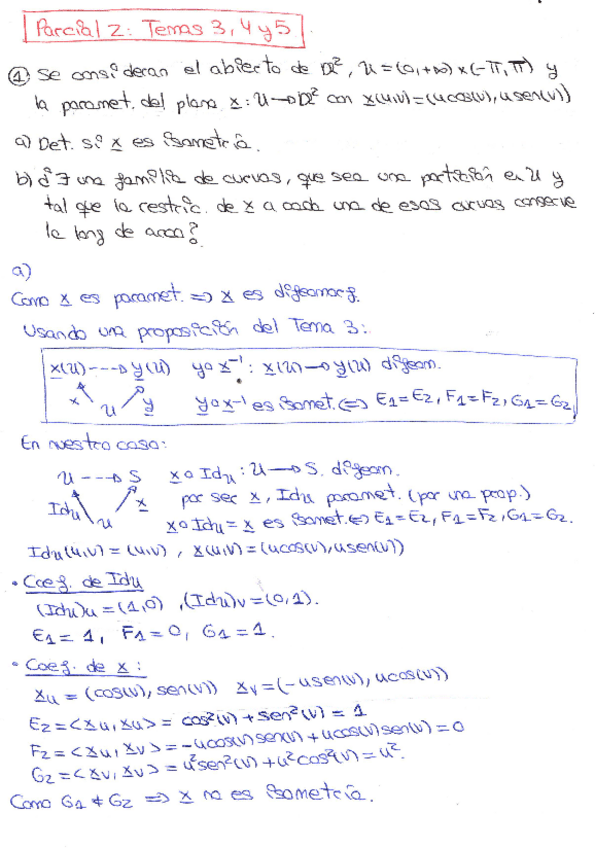 Parcial 2: Temas 3, 4 y 5
① Se consideran el abierto de ℝ², U=(0,+∞)×(-π,π) y
la paramet. del plano x: U→ℝ² con x(u,v)=(ucos(v),usen(v))
a) Det. si x es isometría.
b) ¿∃ una familia de curvas, que sea una partición en U y
tal que la restric. de x a cada una de esas curvas conserve
la long de arco?
a)
Como x es paramet. ⇒ x es difeomorf.
Usando una proposición del Tema 3:
x(U) ---→ y(U) y∘x⁻¹: x(U)→y(U) difeom.
x U y y∘x⁻¹ es isomet. ⇔ E₁=E₂, F₁=F₂, G₁=G₂
En nuestro caso:
U ---→ S x∘Idu: U→S difeom.
Idu U x por ser x, Idu paramet. (por una prop.)
x∘Idu = x es isomet. ⇔ E₁=E₂, F₁=F₂, G₁=G₂.
Idu(u,v)=(u,v), x(u,v)=(ucos(v),usen(v))
• Coef. de Idu
(Idu)u=(1,0), (Idu)v=(0,1).
E₁=1, F₁=0, G₁=1.
• Coef. de x:
xu=(cos(v),sen(v)) xv=(-usen(v),ucos(v))
E₂=<xu,xu>= cos²(v)+sen²(v)=1
F₂=<xu,xv>=-ucos(v)sen(v)+ucos(v)sen(v)=0
G₂=<xv,xv>=u²sen²(v)+u²cos²(v)=u².
Como G₁≠G₂ ⇒ x no es isometría.